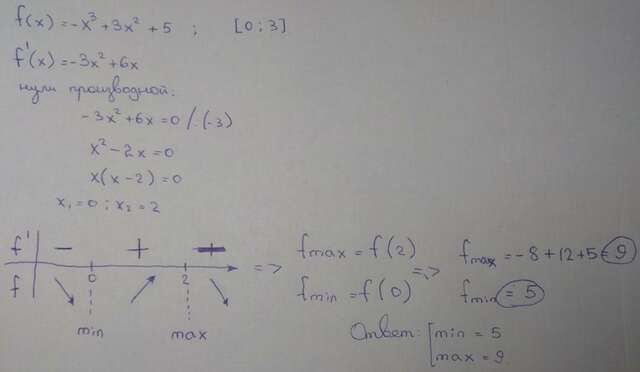 f(x) = -x³ + 3x² + 5 ; [0 ; 3]
f'(x) = -3x² + 6x
нули производной:
-3x² + 6x = 0 /:(-3)
x² - 2x = 0
x(x - 2) = 0
x₁ = 0 ; x₂ = 2
f' - + -
0 2
f ↘ ↗ ↘
min max
=> fmax = f(2)
fmin = f(0)
=> fmax = -8 + 12 + 5 = 9
fmin = 5
Ответ: [min = 5
max = 9